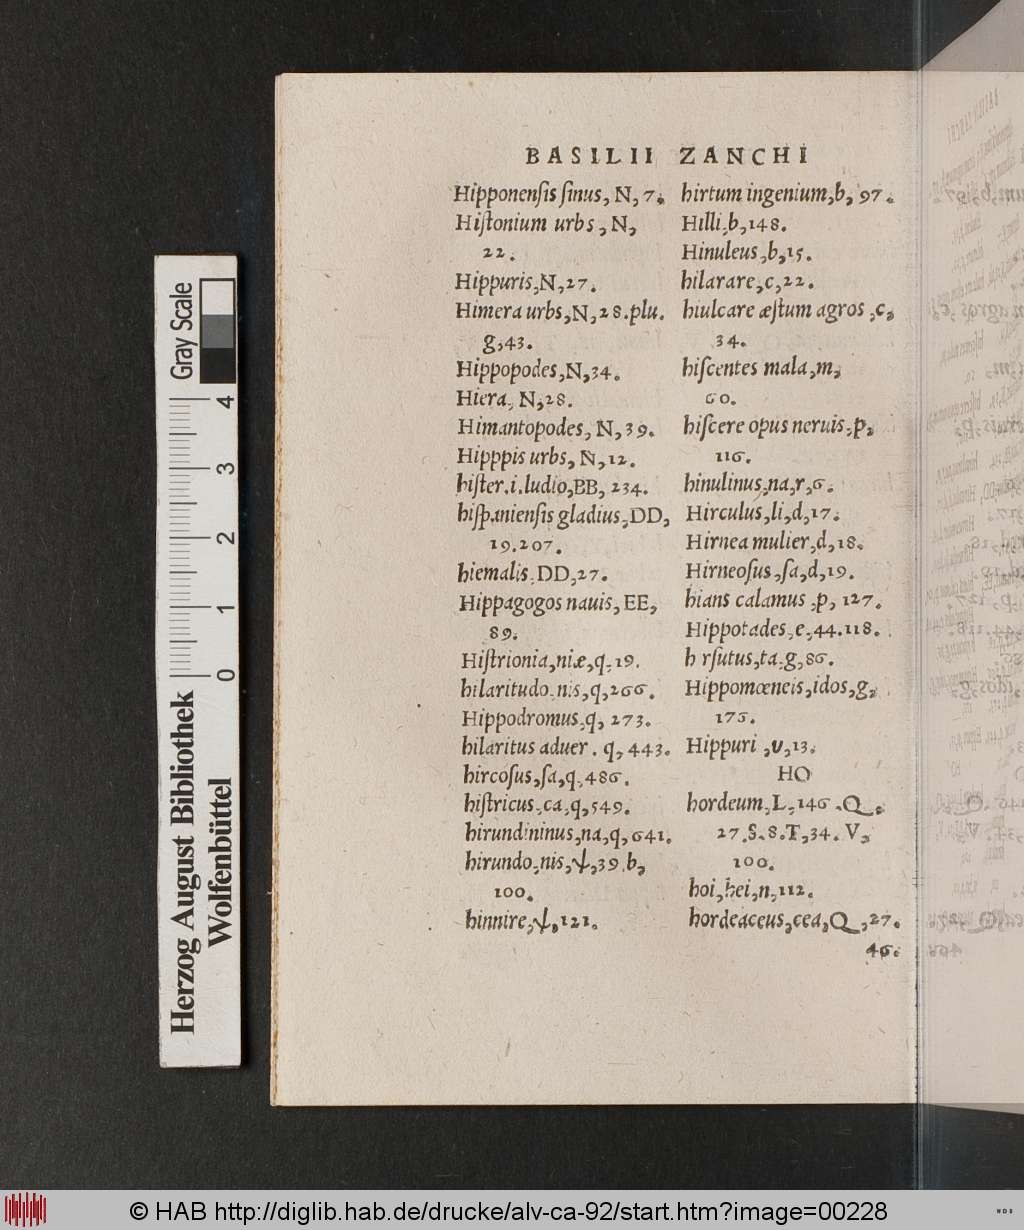 BASILII ZANCHI
Hipponenſis ſinus, N, 7.
Hiſtonium urbs, N,
22.
Hippuris, N, 27.
Himera urbs, N, 28. plu.
g, 43.
Hippopodes, N, 34.
Hiera, N, 28.
Himantopodes, N, 39.
Hipppis urbs, N, 12.
hiſter. i. ludio, BB, 234.
hiſpanienſis gladius, DD,
19. 207.
hiemalis. DD, 27.
Hippagogos nauis, EE,
89.
Hiſtrionia, niæ, q, 19.
hilaritudo. nis, q, 266.
Hippodromus, q, 273.
hilaritus aduer. q, 443.
hircoſus, ſa, q, 486.
hiſtricus, ca, q, 549.
hirundininus, na, q, 641.
hirundo, nis, ψ, 39 b,
100.
hinnire, ψ, 121.
hirtum ingenium, b, 97.
Hilli, b, 148.
Hinuleus, b, 15.
hilarare, c, 22.
hiulcare æſtum agros, c,
34.
hiſcentes mala, m,
60.
hiſcere opus neruis, p,
116.
hinulinus, na, r, 6.
Hirculus, li, d, 17.
Hirnea mulier, d, 18.
Hirneoſus, ſa, d, 19.
hians calamus, p, 127.
Hippotades, e, 44. 118.
h rſutus, ta, g, 86.
Hippomœneis, idos, g,
176.
Hippuri, υ, 13.
HO
hordeum, L, 146. Q,
27. S. 8. T, 34. V,
100.
hoi, hei, n, 112.
hordeaceus, cea, Q, 27.
46.
Gray Scale
4
3
2
1
0
Herzog August Bibliothek
Wolfenbüttel
© HAB http://diglib.hab.de/drucke/alv-ca-92/start.htm?image=00228